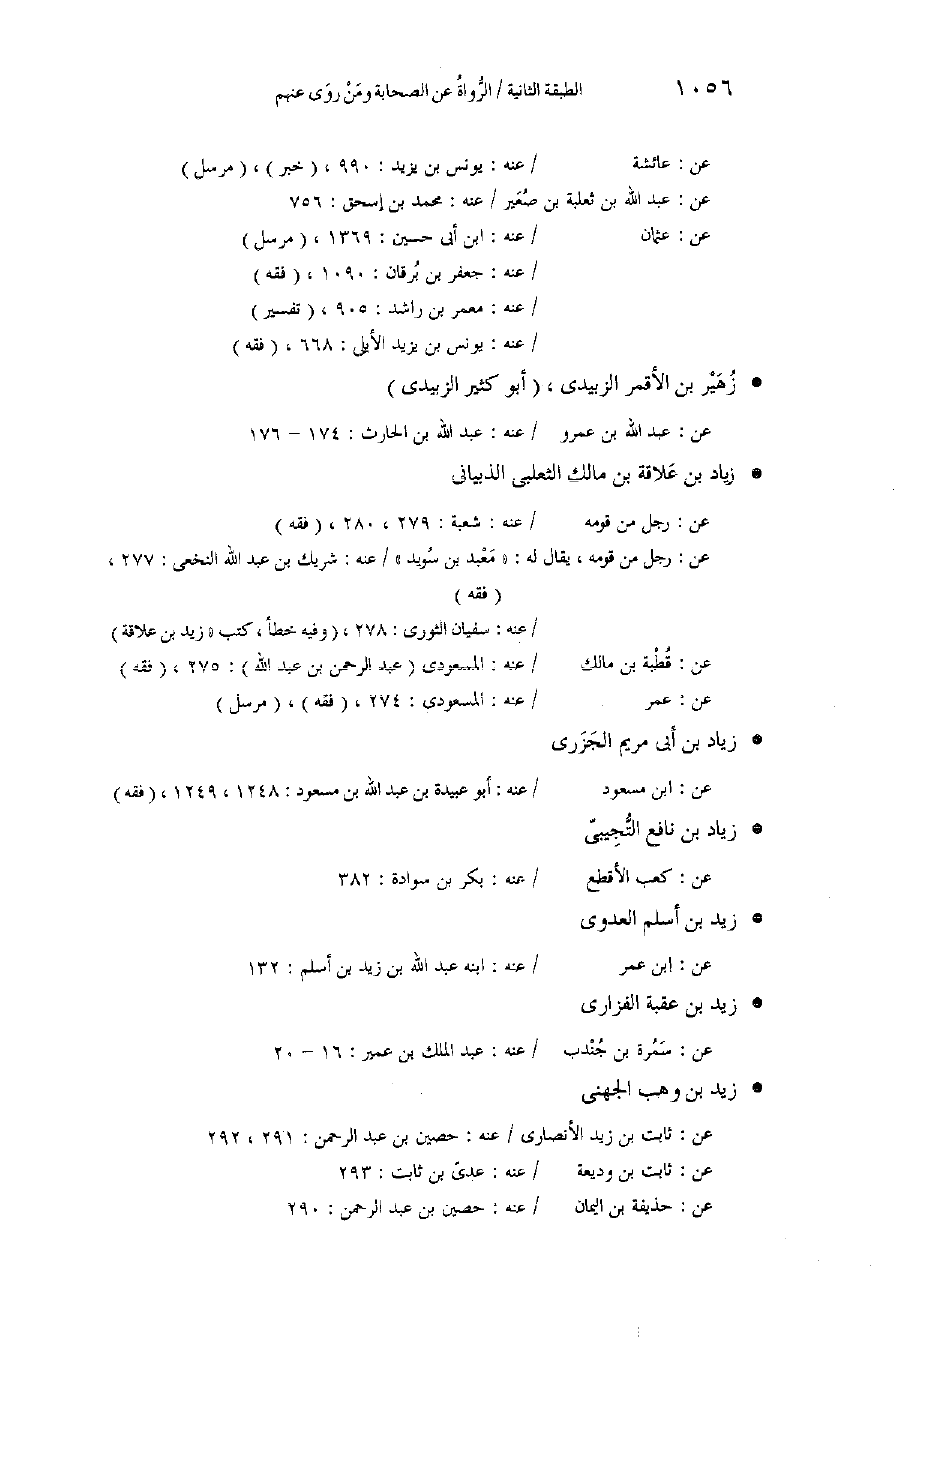 ١٠٥٦ الطبقة الثانية / الرُّواةُ عن الصحابة ومَنْ روَى عنهم
عن : عائشة / عنه : يونس بن يزيد : ٩٩٠ ، ( خبر ) ، ( مرسل )
عن : عبد الله بن ثعلبة بن صُعَير / عنه : محمد بن إسحق : ٧٥٦
عن : عثمان / عنه : ابن أبى حسين : ١٣٦٩ ، ( مرسل )
/ عنه : جعفر بن بُرقان : ١٠٩٠ ، ( فقه )
/ عنه : معمر بن راشد : ٩٠٥ ، ( تفسير )
/ عنه : يونس بن يزيد الأيلى : ٦٦٨ ، ( فقه )
• زُهَيْر بن الأقمر الزبيدى ، ( أبو كثير الزبيدى )
عن : عبد الله بن عمرو / عنه : عبد الله بن الحارث : ١٧٤ – ١٧٦
• زياد بن عَلاقة بن مالك الثعلبى الذبيانى
عن : رجل من قومه / عنه : شعبة : ٢٧٩ ، ٢٨٠ ، ( فقه )
عن : رجل من قومه ، يقال له : « مَعْبد بن سُويد » / عنه : شريك بن عبد الله النخعى : ٢٧٧ ،
( فقه )
/ عنه : سفيان الثورى : ٢٧٨ ، ( وفيه خطأ ، كتب « زيد بن علاقة )
عن : قُطْبة بن مالك / عنه : المسعودى ( عبد الرحمن بن عبد الله ) : ٢٧٥ ، ( فقه )
عن : عمر / عنه : المسعودى : ٢٧٤ ، ( فقه ) ، ( مرسل )
• زياد بن أبى مريم الجَزَرى
عن : ابن مسعود / عنه : أبو عبيدة بن عبد الله بن مسعود : ١٢٤٨ ، ١٢٤٩ ، ( فقه )
• زياد بن نافع التُّجِيبىّ
عن : كعب الأقطع / عنه : بكر بن سوادة : ٣٨٢
• زيد بن أسلم العدوى
عن : ابن عمر / عنه : ابنه عبد الله بن زيد بن أسلم : ١٣٢
• زيد بن عقبة الفزارى
عن : سَمُرة بن جُنْدب / عنه : عبد الملك بن عمير : ١٦ – ٢٠
• زيد بن وهب الجهنى
عن : ثابت بن زيد الأنصارى / عنه : حصين بن عبد الرحمن : ٢٩١ ، ٢٩٢
عن : ثابت بن وديعة / عنه : عدىّ بن ثابت : ٢٩٣
عن : حذيفة بن اليمان / عنه : حصين بن عبد الرحمن : ٢٩٠